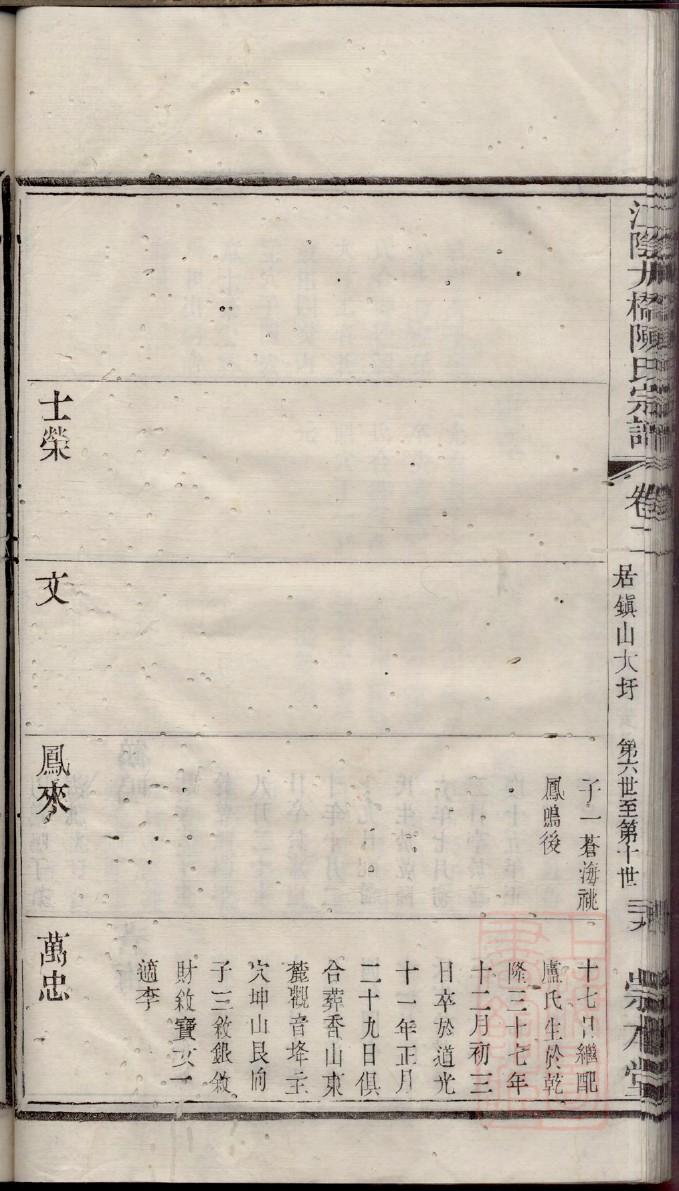 江陰九橋陳氏宗譜
卷二
居鎮山大圩
第六世至第十世
崇本堂
士榮
文
子一蒼海祧
鳳鳴後
鳳來
十七日繼配
盧氏生於乾
隆三十七年
十二月初三
日卒於道光
十一年正月
二十九日俱
合葬香山東
麓觀音垾主
穴坤山艮向
子三敘銀敘
財敘寶女一
適李
萬忠